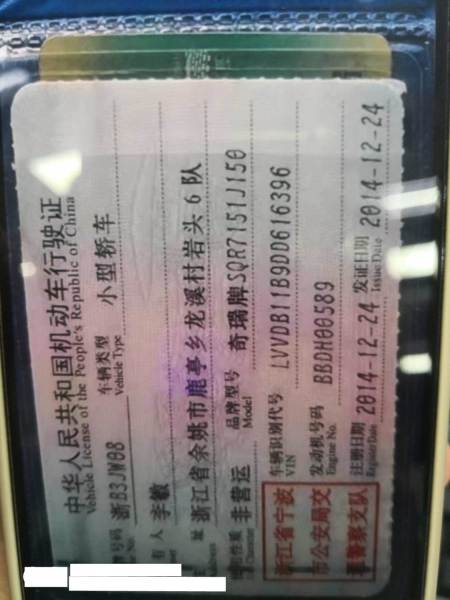 中华人民共和国机动车行驶证
Vehicle License of the People's Republic of China
牌号码 浙B3JW08 车辆类型 小型轿车
Vehicle Type
有人 李敏
址 浙江省余姚市鹿亭乡龙溪村岩头6队
性质 非营运 品牌型号 奇瑞牌SQR7151J150
Model
浙江省宁波
市公安局交
警察支队
车辆识别代号 LVVDB11B9DD616396
VIN
发动机号码 BBDH00589
Engine No.
注册日期 2014-12-24 发证日期 2014-12-24
Register Date Issue Date